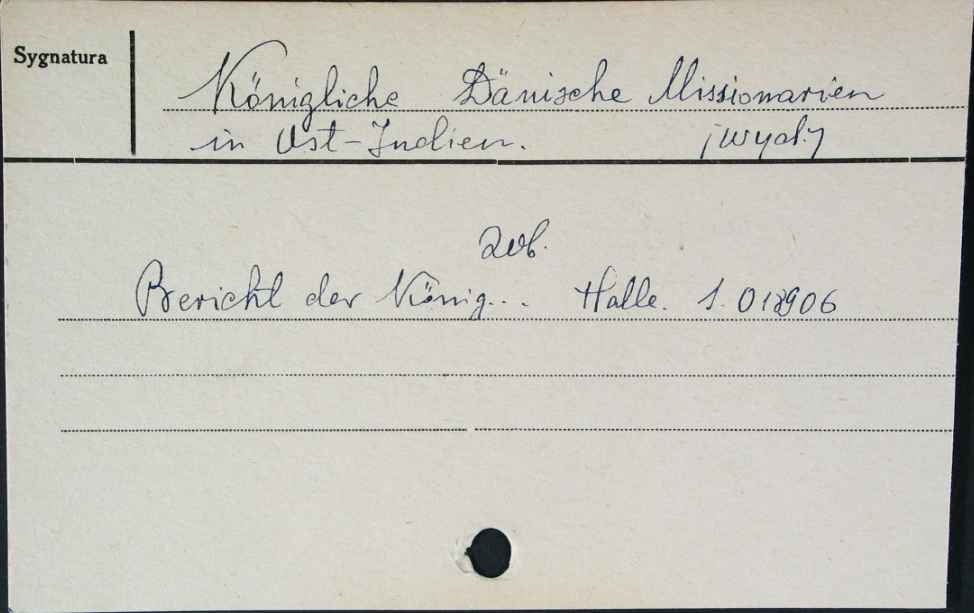 Sygnatura
Königliche Dänische Missionarien
in Ost-Indien. [wyd.]
zob.
Bericht der König... Halle. 1. 018906